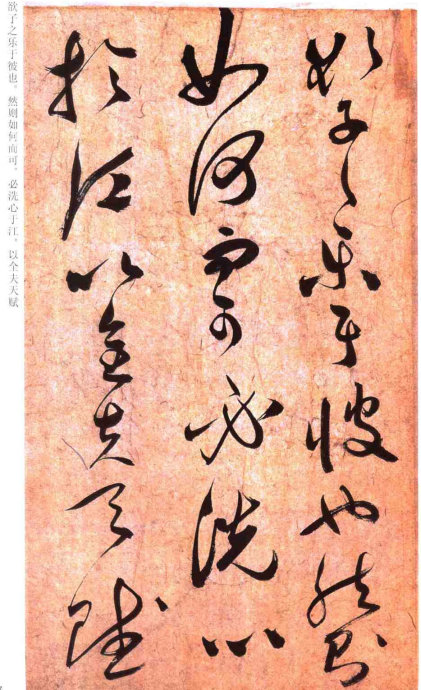 欲子之乐于彼也。然则如何而可。必洗心于江,以全夫天赋
欲子之樂于彼也然則
如何而可必洗心
於江以全夫天賦